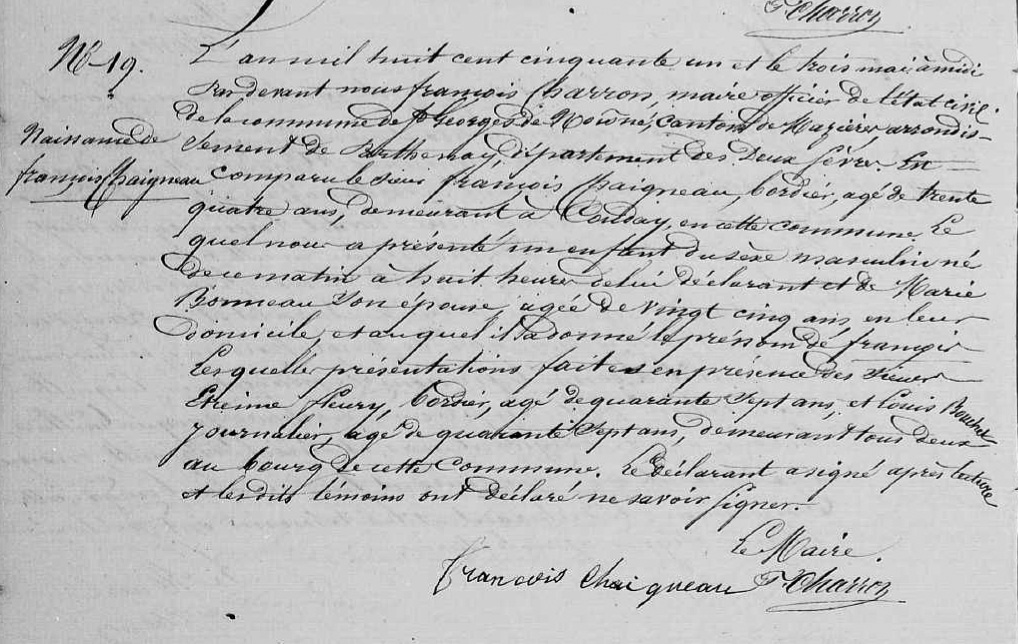 F Charron
N° 19.
Naissance de
françois Chaigneau
L'an mil huit cent cinquante un et le trois mai à midi
Par devant nous françois Charron, maire officier de l'état civil
de la commune de St Georges de Noisné, canton de Mazières, arrondis-
sement de Parthenay, département des Deux Sèvres. En
comparu le sieur françois Chaigneau, bordier, agé de trente
quatre ans, demeurant à Couday, en cette commune. Le
quel nous a présenté un enfant du sèxe masculin né
de ce matin à huit heures de lui déclarant et de Marie
Bonneau son épouse, agée de vingt cinq ans, en leur
domicile, et auquel il a donné le prénom de françois
Lesquelles présentations faites en présence des sieurs
Etienne fleury, bordier, agé de quarante sept ans, et Louis
journalier, agé de quarante sept ans, demeurant tous deux
au bourg de cette commune. Le déclarant a signé après lecture
et les dits témoins ont déclaré ne savoir signer.
Le Maire.
francois Chaigneau F Charron